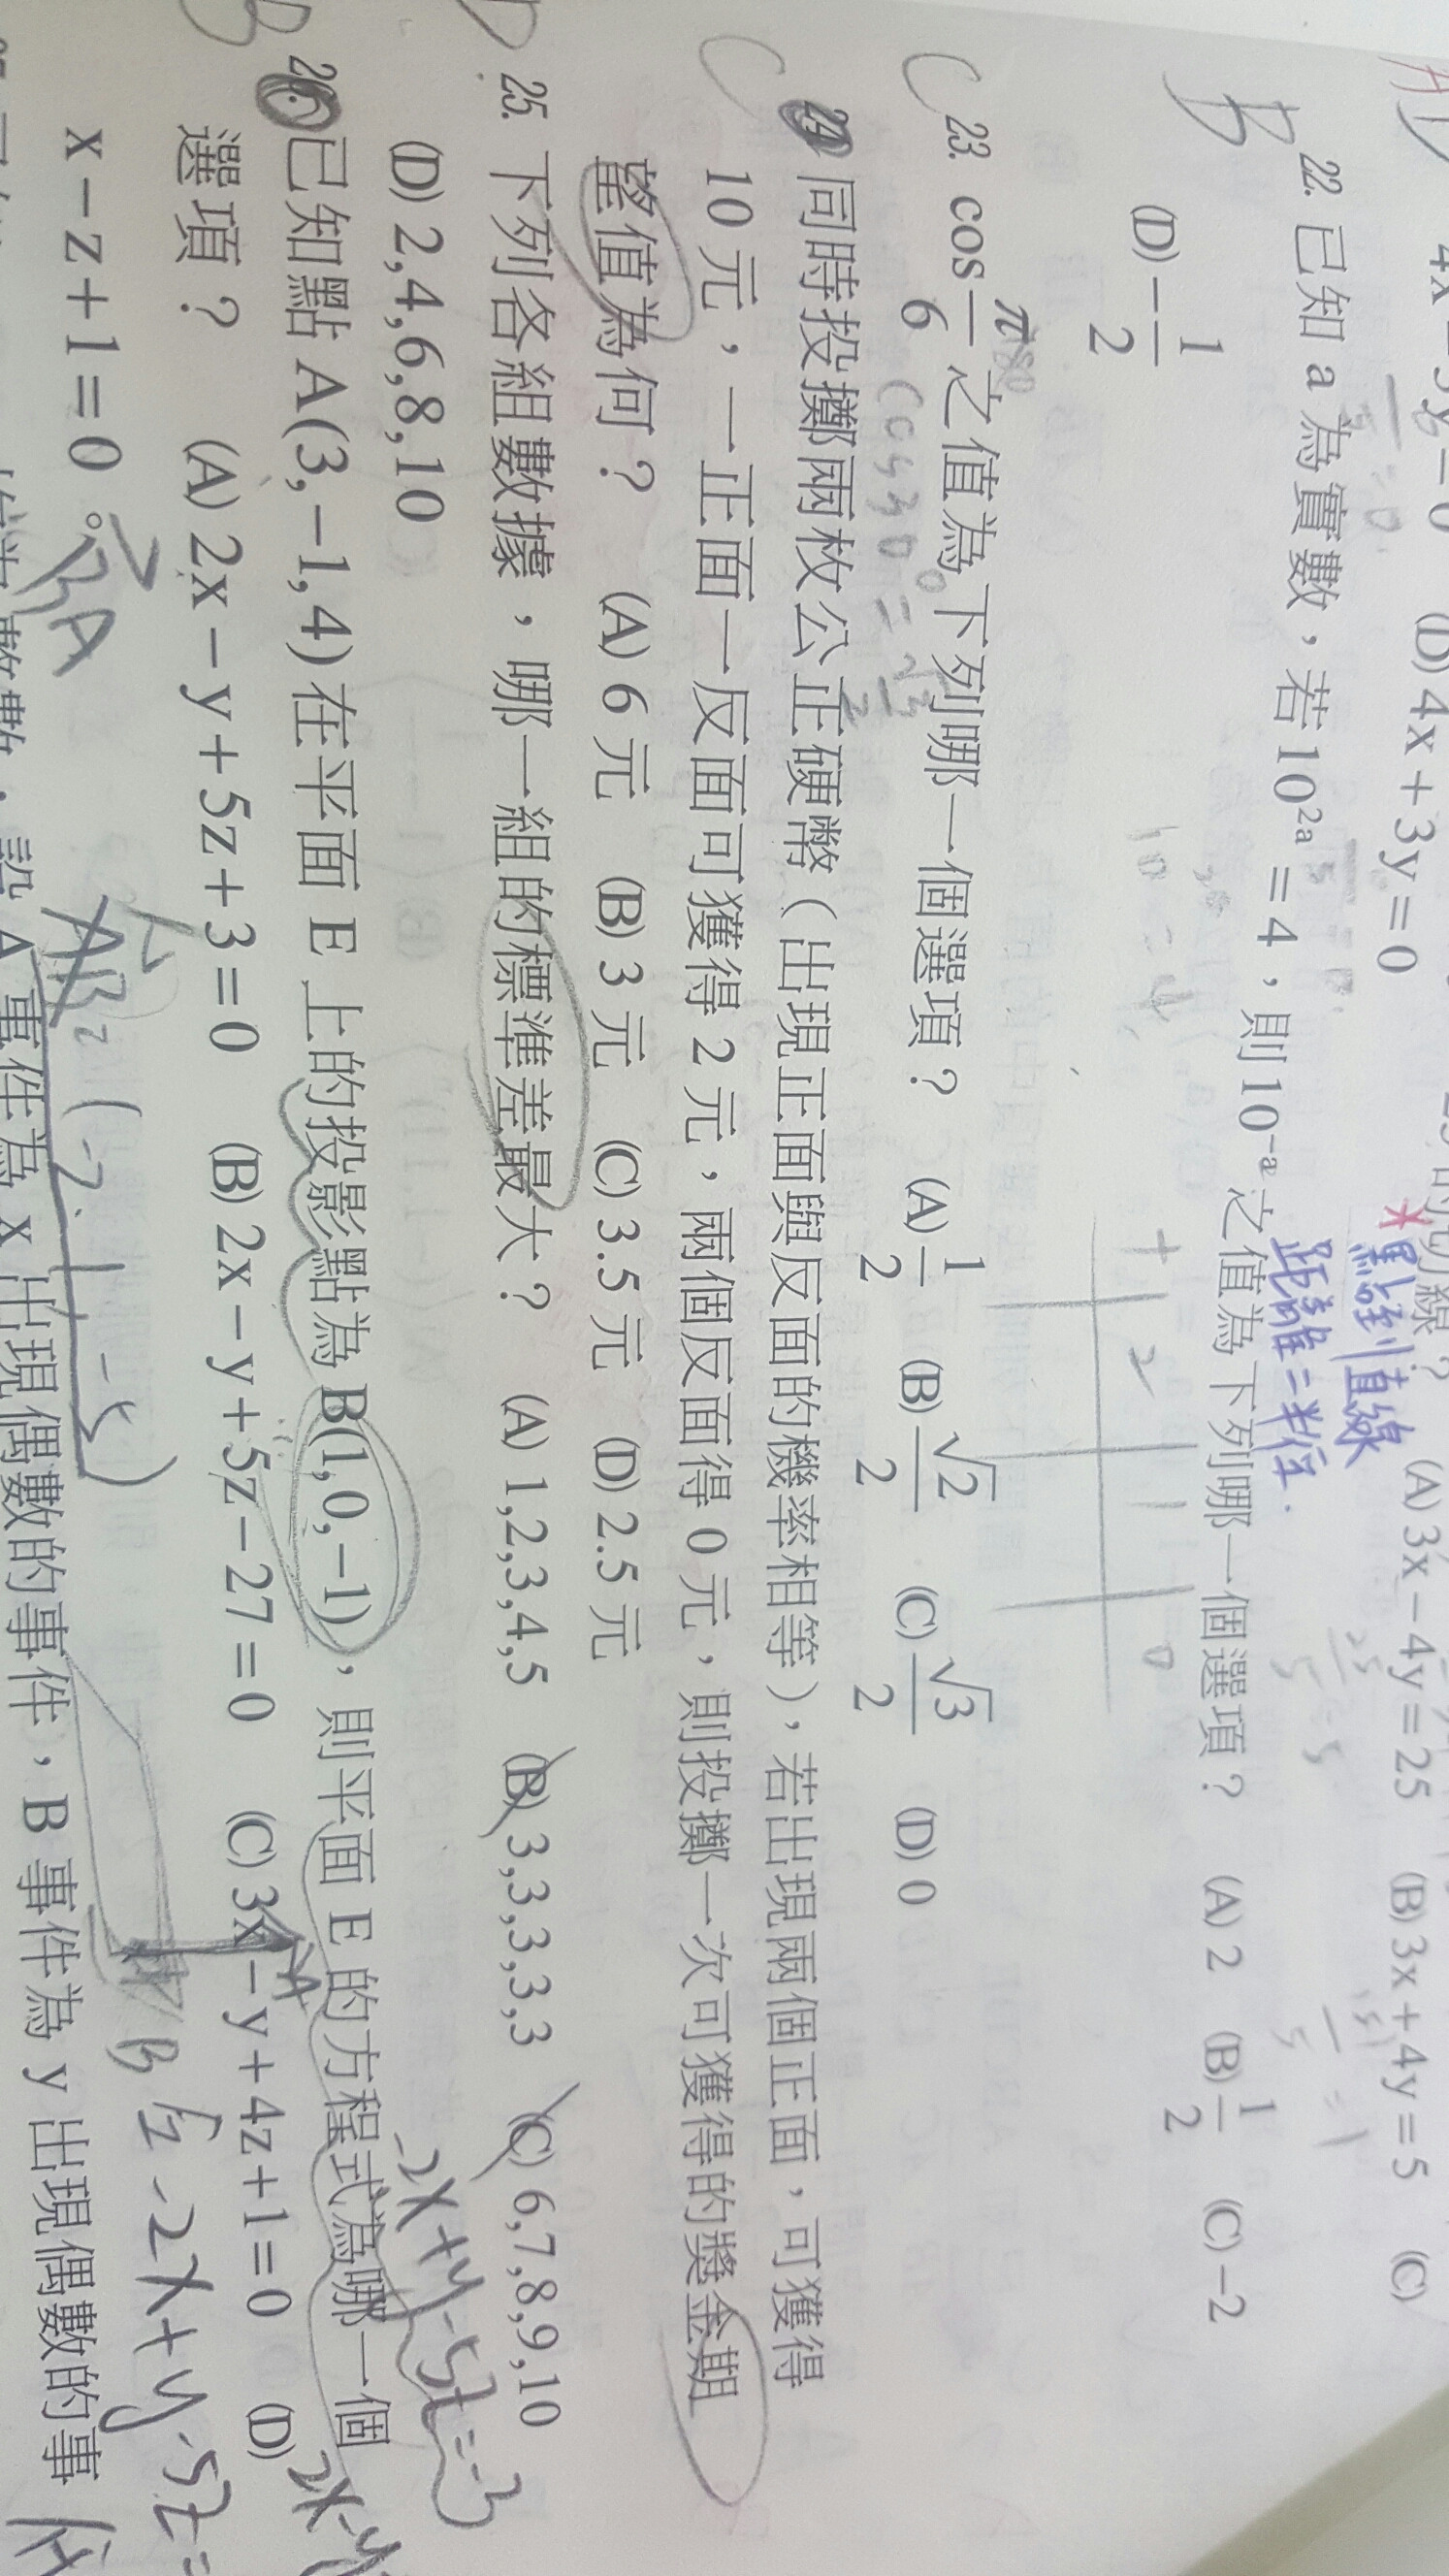 4x-3y=0 (D) 4x+3y=0
(A) 3x-4y=25 (B) 3x+4y=5 (C)
* 點到直線
距離=半徑.
B 22. 已知 a 為實數，若 10²ᵃ=4，則 10⁻ᵃ 之值為下列哪一個選項？ (A) 2 (B) 1/2 (C) -2
(D) -1/2
+ 2 1 0
C 23. cos π/6 之值為下列哪一個選項？ (A) 1/2 (B) √2/2 (C) √3/2 (D) 0
cos30°=√3/2
C 24. 同時投擲兩枚公正硬幣（出現正面與反面的機率相等），若出現兩個正面，可獲得
10 元，一正面一反面可獲得 2 元，兩個反面得 0 元，則投擲一次可獲得的獎金期
望值為何？ (A) 6 元 (B) 3 元 (C) 3.5 元 (D) 2.5 元
D 25. 下列各組數據，哪一組的標準差最大？ (A) 1,2,3,4,5 (B) 3,3,3,3,3 (C) 6,7,8,9,10
(D) 2,4,6,8,10
-2x+y-5z=-3
B 26. 已知點 A(3,-1,4) 在平面 E 上的投影點為 B(1,0,-1)，則平面 E 的方程式為哪一個
選項？ (A) 2x-y+5z+3=0 (B) 2x-y+5z-27=0 (C) 3x-y+4z+1=0 (D)
x-z+1=0。
BA
A
B
AB=(-2, 1, -5)
E=-2x+y-5z=
A 事件為 x 出現偶數的事件，B 事件為 y 出現偶數的事